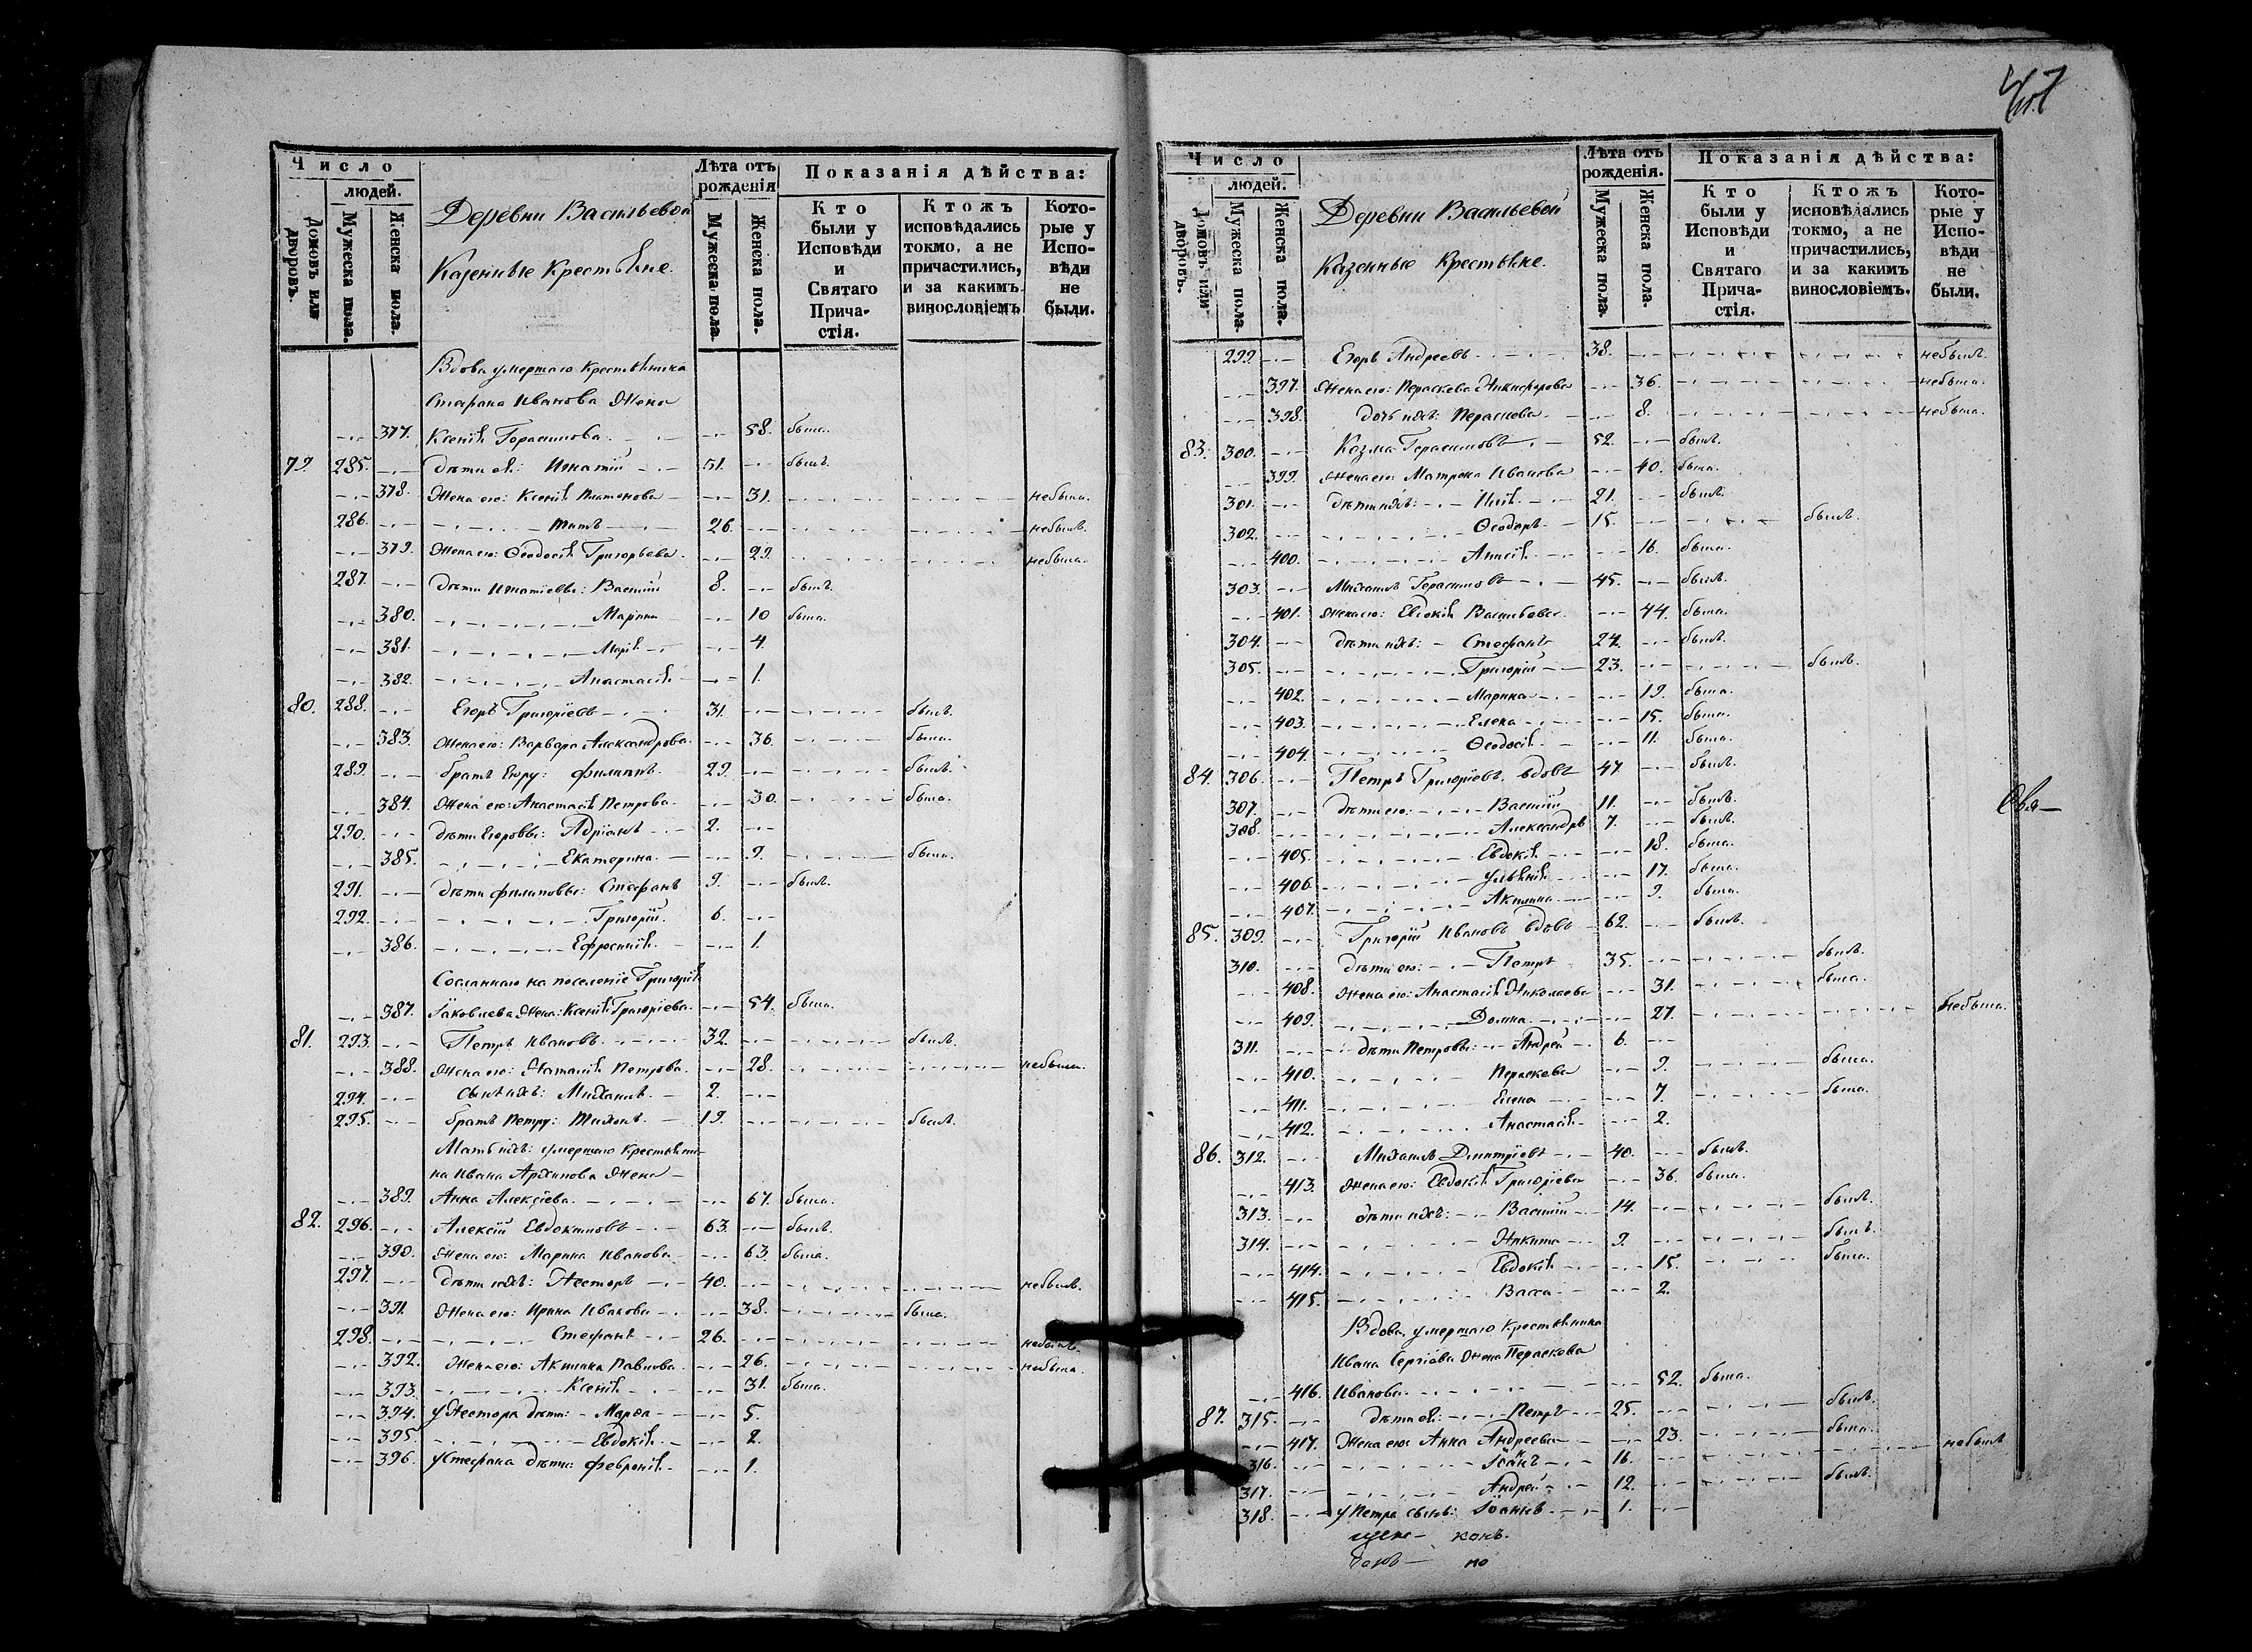 Число
людей.
Домовъ или дворовъ.
Мужеска пола.
Женска пола.
Деревни Васильевой
Казенные Крестьяне.
Лѣта отъ рожденія
Мужеска пола.
Женска пола.
Показанія дѣйства:
Кто были у Исповѣди и Святаго Прича-стія.
Ктожъ исповѣдались токмо, а не причастились, и за какимъ винословіемъ
Кото-рые у Испо-вѣди не были.
Вдова умершаго крестьянина
Стефана Иванова жена
377. Ксенія Герасимова 58. была.
79. 285. дѣти ея: Игнатій 51. былъ.
378. Жена его: Ксенія Платонова 31. небыла.
286. Титъ 26. небылъ.
379. Жена его: Ѳеодосія Григорьева 29. небыла.
287. дѣти Игнатіевы: Василій 8. былъ.
380. Марина 10 была.
381. Марія 4.
382. Анастасія 1.
80. 288. Егоръ Григоріевъ 31. былъ.
383. Жена его: Варвара Александрова 36. была.
289. братъ Егору: Филиппъ 29. былъ.
384. Жена его: Анастасія Петрова 30. была.
290. дѣти Егоровы: Адріанъ 2.
385. Екатерина 9. была.
291. дѣти Филиповы: Стефанъ 9. былъ.
292. Григорій 6.
386. Ефросинія 1.
Сосланнаго на поселеніе Григорія
387. Іаковлева Жена: Ксенія Григоріева 54. была.
81. 293. Петръ Ивановъ 32. былъ.
388. Жена его: Наталія Петрова 28. небыла.
294. Сынъ ихъ: Михаилъ 2.
295. братъ Петру: Тихонъ 19. былъ.
Мать ихъ: умершаго крестьяни-
на Ивана Архипова Жена
389. Анна Алексіева 67. была.
82. 296. Алексій Евдокимовъ 63. былъ.
390. Жена его: Марина Иванова 63. была.
297. дѣти ихъ: Несторъ 40. небылъ.
391. Жена его: Ирина Иванова 38. была.
298. Стефанъ 26. небылъ.
392. Жена его: Акилина Павлова 26. небыла.
393. Ксенія 31. была.
394. У Нестора дѣти: Марѳа 5.
395. Евдокія 2.
396. У Стефана дѣти: Февронія 1.
Число
людей.
Домовъ или дворовъ.
Мужеска пола.
Женска пола.
Деревни Васильевой
Казенные Крестьяне.
Лѣта отъ рожденія.
Мужеска пола.
Женска пола.
Показанія дѣйства:
Кто были у Исповѣди и Святаго Прича-стія.
Ктожъ исповѣдались токмо, а не причастились, и за какимъ винословіемъ.
Кото-рые у Испо-вѣди не были.
299. Егоръ Андреевъ 38. небылъ.
397. Жена его: Параскева Никифорова 36. небыла.
398. дочь ихъ: Параскева 8. небыла.
83. 300. Козма Герасимовъ 52. былъ.
399. Жена его: Матрона Иванова 40. была.
301. дѣти ихъ: Илія 21. былъ.
302. Ѳеодоръ 15. былъ.
400. Анисія 16. была.
303. Михаилъ Герасимовъ 45. былъ.
401. Жена его: Евдокія Васильева 44. была.
304. дѣти ихъ: Стефанъ 24. былъ.
305. Григорій 23. былъ.
402. Марина 19. была.
403. Елена 15. была.
404. Ѳеодосія 11. была.
84. 306. Петръ Григоріевъ вдовъ 47. былъ.
307. дѣти его: Василій 11. былъ.
308. Александръ 7. былъ.
405. Евдокія 18. была.
406. Ульянія 17. была.
407. Акилина 9. была.
85. 309. Григорій Ивановъ вдовъ 62. былъ.
310. дѣти его: Петръ 35. былъ.
408. Жена его: Анастасія Николаева 31. была.
409. Домна 27. небыла.
311. дѣти Петровы: Андрей 6.
410. Параскева 9. была.
411. Елена 7. была.
412. Анастасія 2.
86. 312. Михаилъ Димитріевъ 40. былъ.
413. Жена его: Евдокія Григоріева 36. была.
313. дѣти ихъ: Василій 14. былъ.
314. Никита 9. былъ.
414. Евдокія 15. была.
415. Васса 2.
Вдова, умершаго крестьянина
Ивана Сергіева Жена Параскева
416. Иванова 52. была.
87. 315. дѣти ея: Петръ 25. былъ.
417. Жена его: Анна Андреева 23. была.
316. Іоанъ 16. небылъ
317. Андрей 12. былъ.
318. У Петра сынъ: Іоаннъ 1.